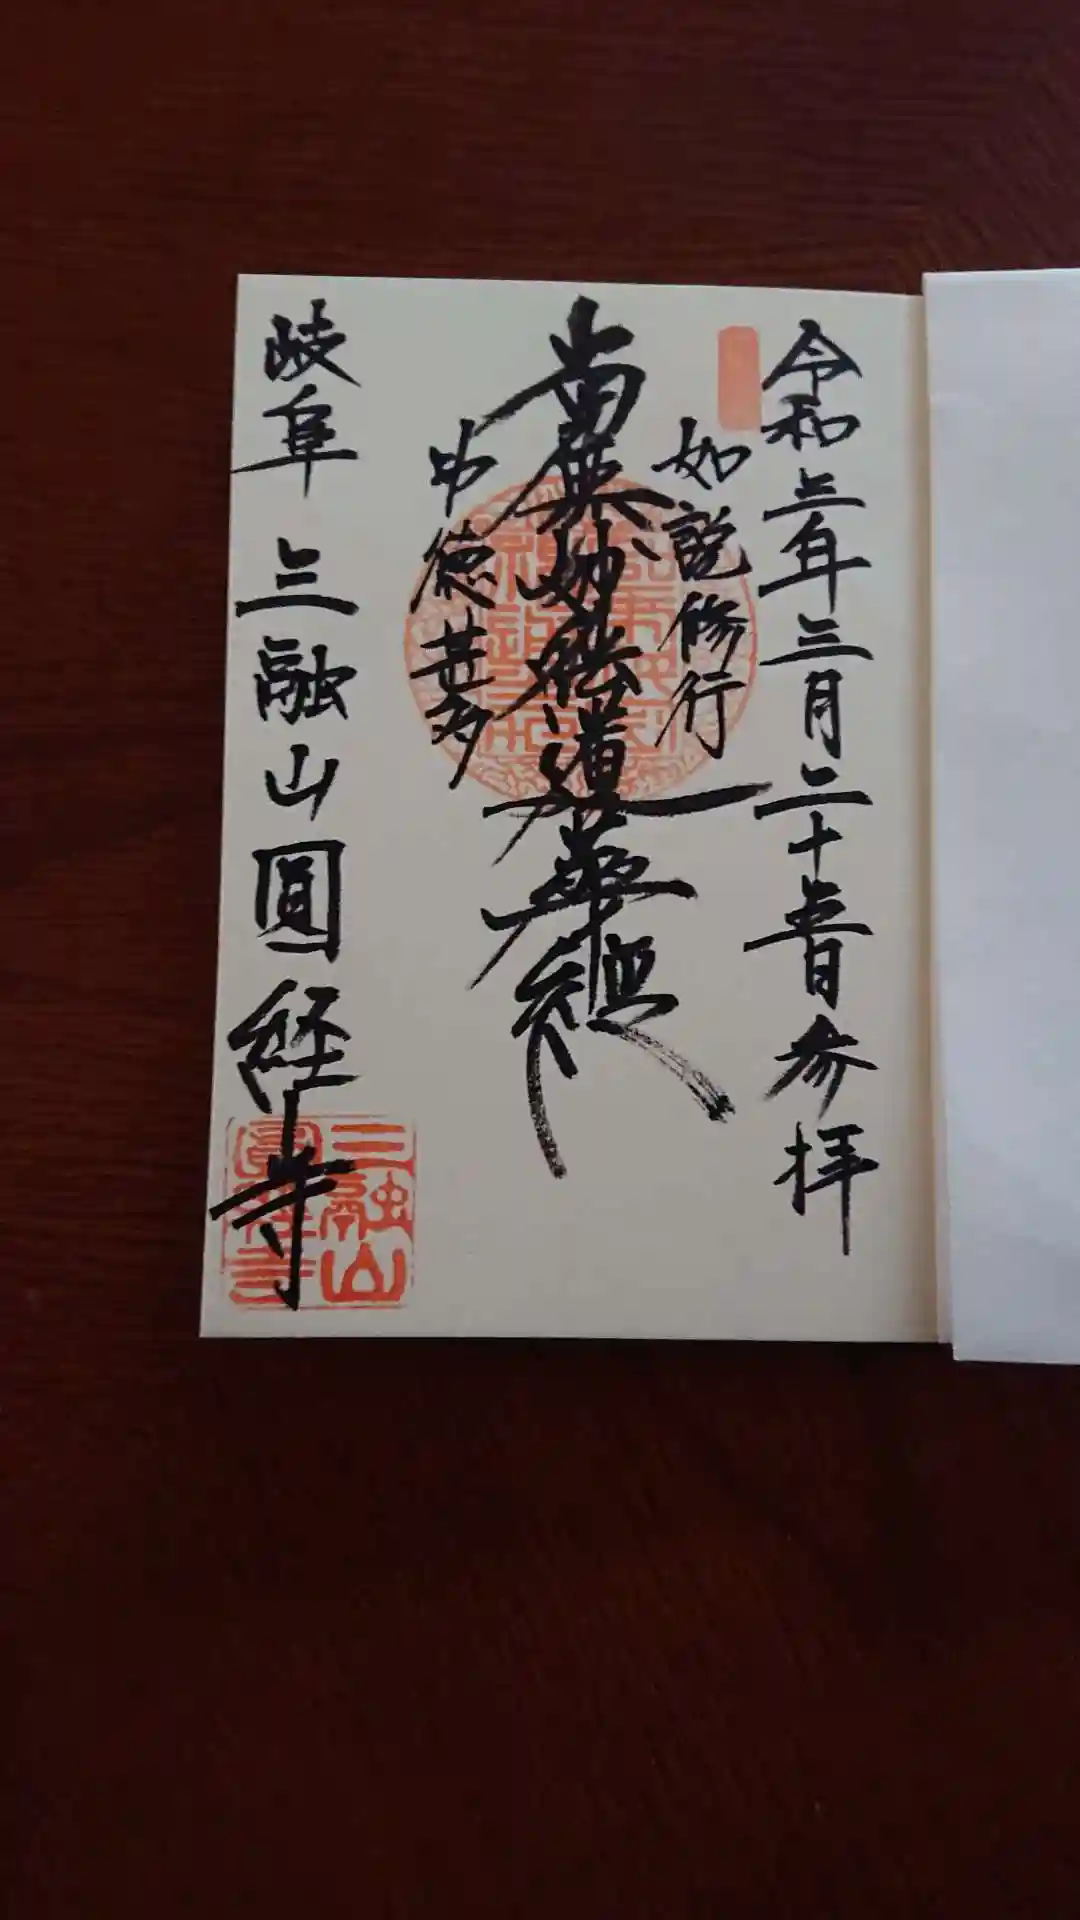 令和三年三月二十五日参拝
如説修行
南無妙法蓮華経
功徳甚多
岐阜 三融山圓経寺
三融山
圓経寺